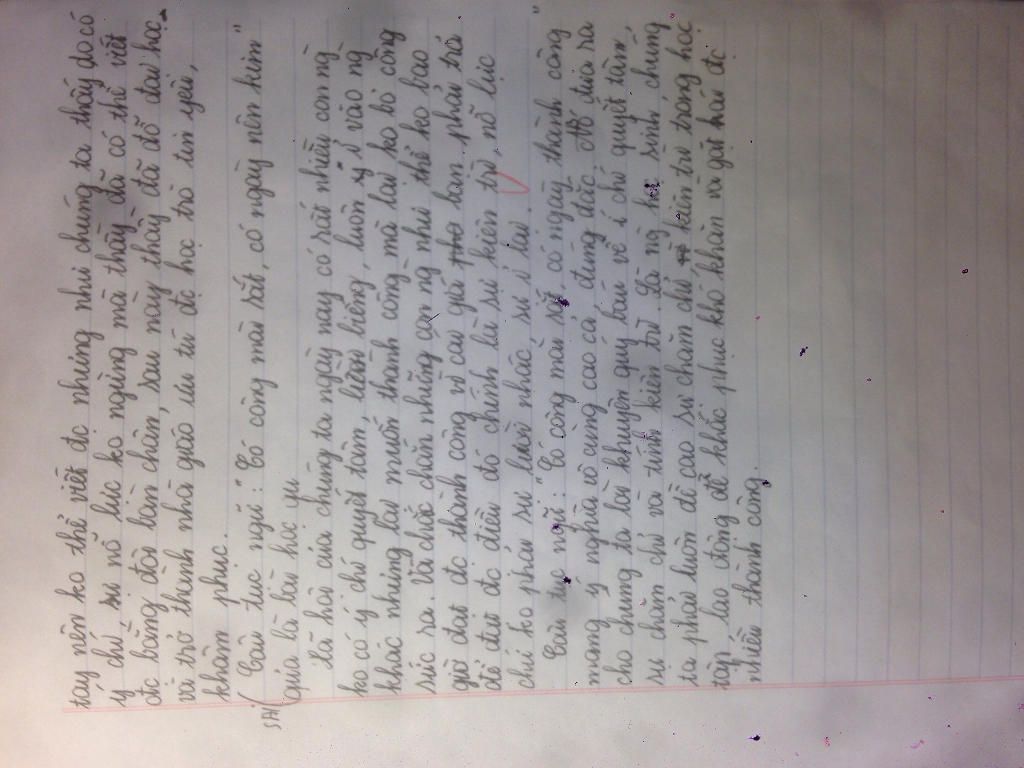 tay nên ko thể viết đc nhưng như chúng ta thấy do có
ý chí, sự nỗ lực ko ngừng mà thầy đã có thể viết
đc bằng đôi bàn chân, sau này thầy đã đỗ đại học
và trở thành nhà giáo ưu tú đc học trò tin yêu,
khâm phục.
SAI ( Câu tục ngữ: "Có công mài sắt, có ngày nên kim"
quả là bài học
Xã hội của chúng ta ngày nay có rất nhiều con ng
ko có ý chí quyết tâm, lười biếng, luôn ỷ ỉ vào ng
khác nhưng lại muốn thành công mà lại ko bỏ công
sức ra. Và chắc chắn những con ng như thế ko bao
giờ đạt đc thành công vì cái giá bạn phải trả
để đạt đc điều đó chính là sự kiên trì, nỗ lực
chứ ko phải sự lười nhác, sự ỉ lại.
Câu tục ngữ: "Có công mài sắt, có ngày thành công"
mang ý nghĩa vô cùng cao cả, đúng đắn. đưa ra
cho chúng ta lời khuyên quý báu về ý chí quyết tâm,
sự chăm chỉ và tính kiên trì. Là ng học sinh chúng
ta phải luôn đề cao sự chăm chỉ kiên trì trong học
tập, lao động để khắc phục khó khăn và gặt hái đc
nhiều thành công.